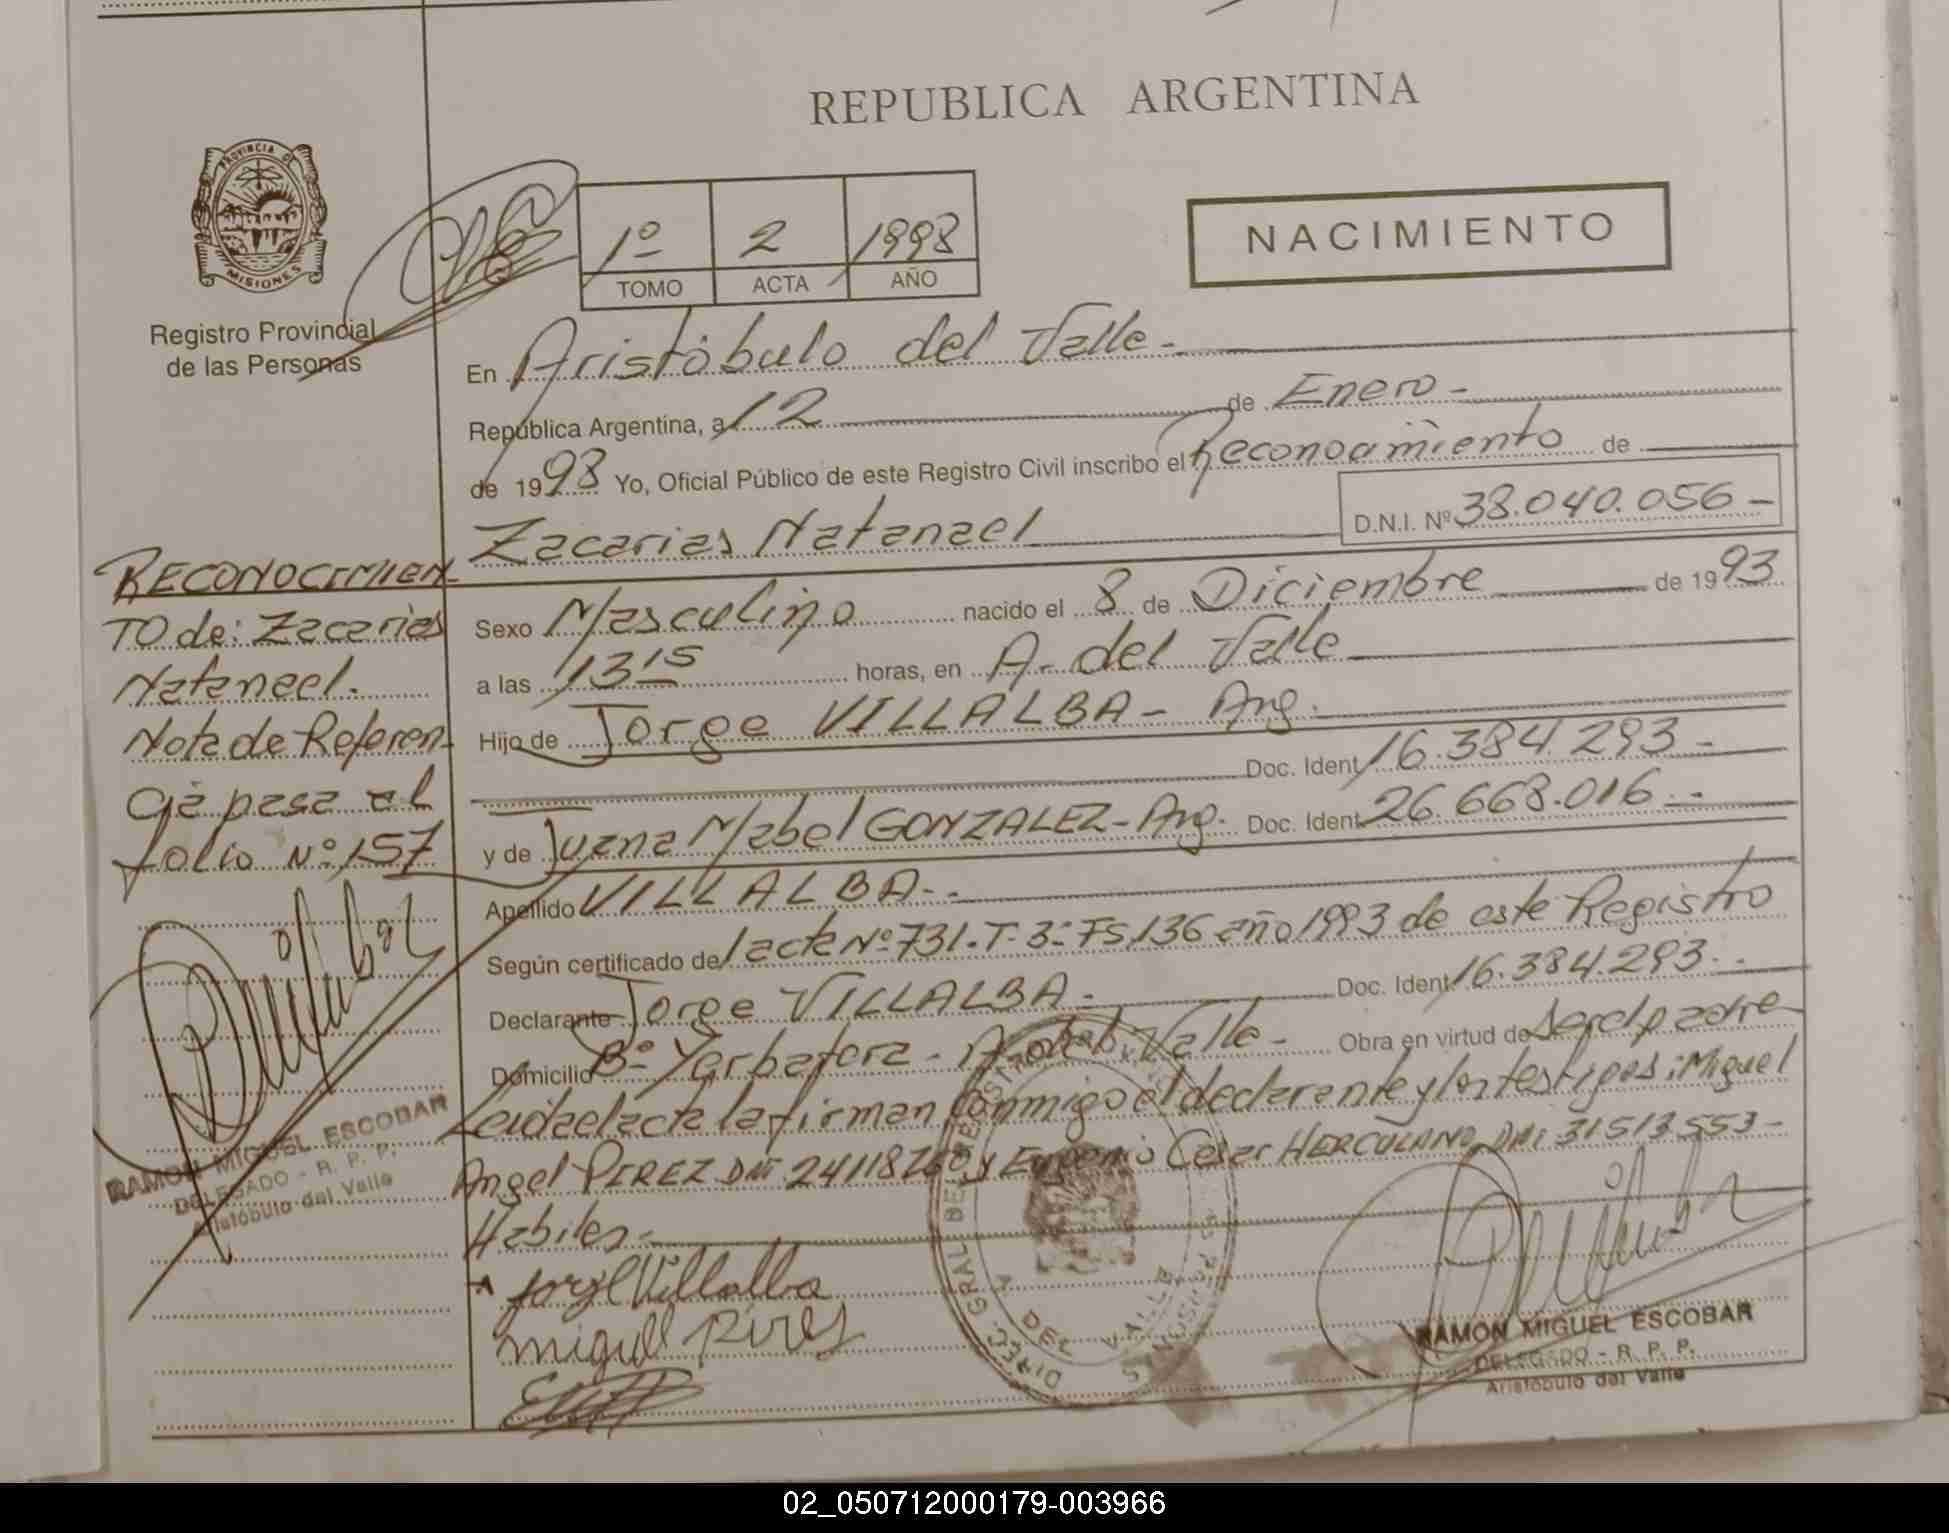 REPUBLICA ARGENTINA
PROVINCIA DE
MISIONES
Registro Provincial
de las Personas
1º 2 1998
TOMO ACTA AÑO
NACIMIENTO
En Aristóbulo del Valle.-
República Argentina, a 12 de Enero-
de 1998 Yo, Oficial Público de este Registro Civil inscribo el Reconocimiento de
Zacarias Natanael D.N.I. Nº 38.040.056-
Sexo Masculino nacido el 8 de Diciembre de 1993
a las 13 15 horas, en A. del Valle
Hijo de Jorge VILLALBA- Arg.
Doc. Ident 16.384.293-
y de Juana Mabel GONZALEZ-Arg. Doc. Ident 26.668.016--
Apellido VILLALBA--
Según certificado de acta Nº 731.T-3-Fs,136 año 1993 de este Registro
Declarante Jorge VILLALBA- Doc. Ident 16.384.293.-
Domicilio Bº Yerbatera- del Valle- Obra en virtud de Ser el padre
Leida el acta la firman conmigo el declarante y los testigos: Miguel
Angel PEREZ DNI y Eugenio Cesar HERCULANO DNI 31513553-
Habiles-
Jorge Villalba
RECONOCIMIEN
TO de: Zacarias
Natanael.
Nota de Referen-
cia pasa al
folio Nº 157
RAMON MIGUEL ESCOBAR
DELEGADO - R. P. P.
Aristóbulo del Valle
A DEL VALLE
MISIONES
RAMON MIGUEL ESCOBAR
DELEGADO - R. P. P.
Aristóbulo del Valle
02_050712000179-003966